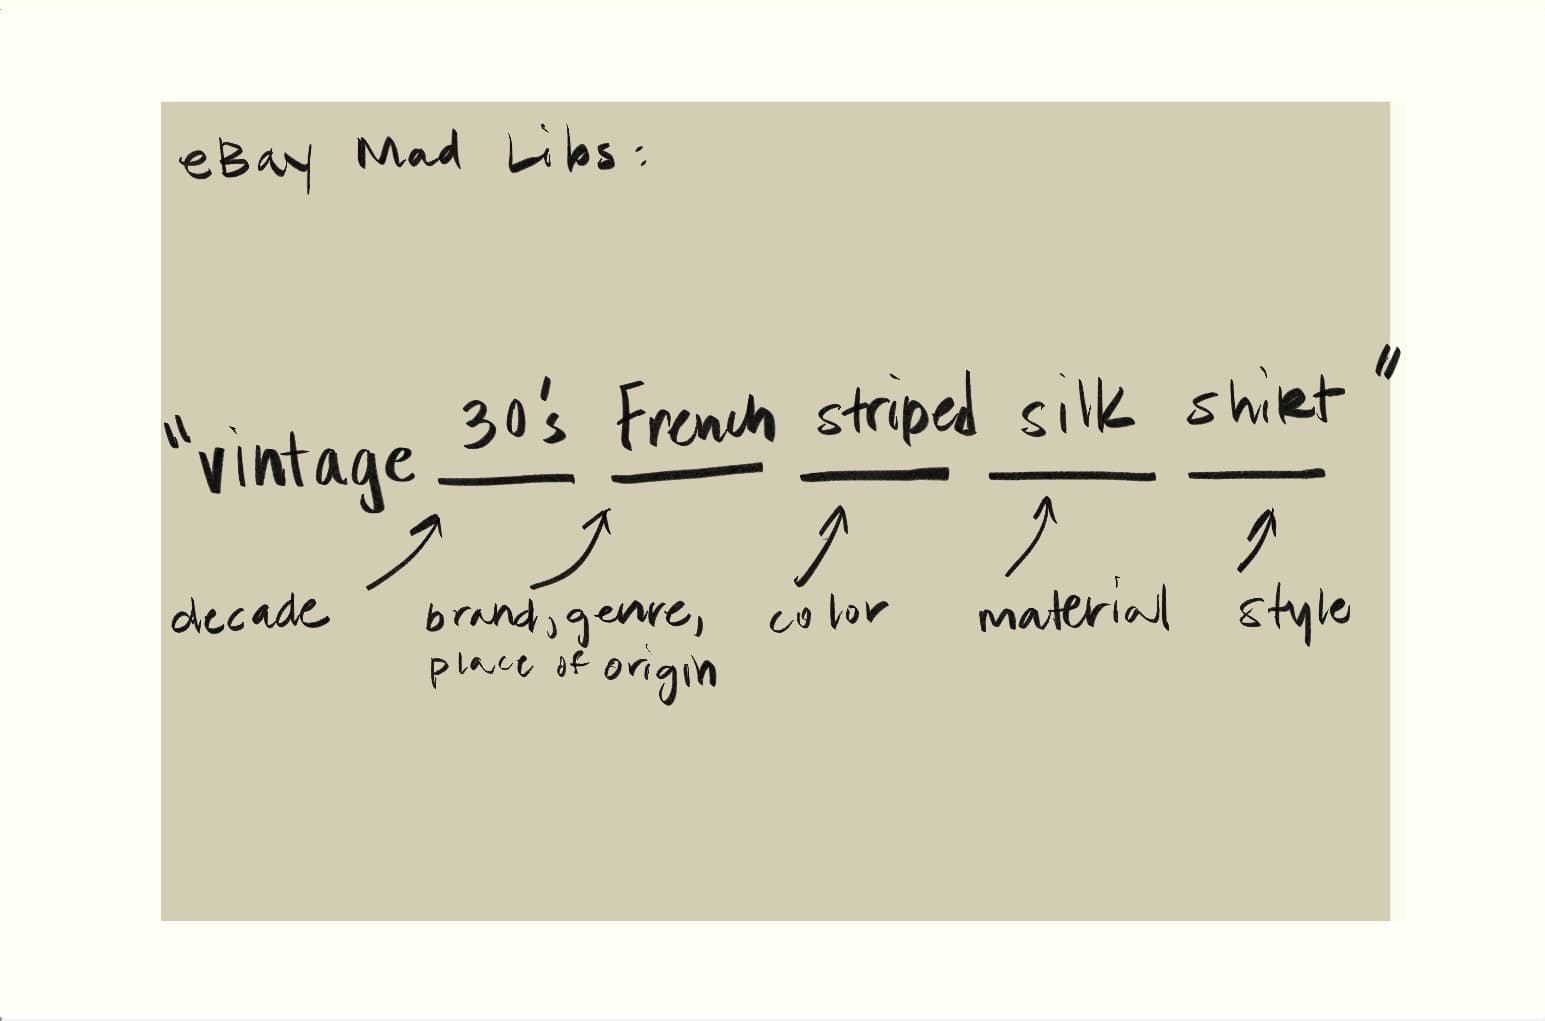 eBay Mad Libs:
"vintage 30's French striped silk shirt"
decade brand, genre, color material style
place of origin